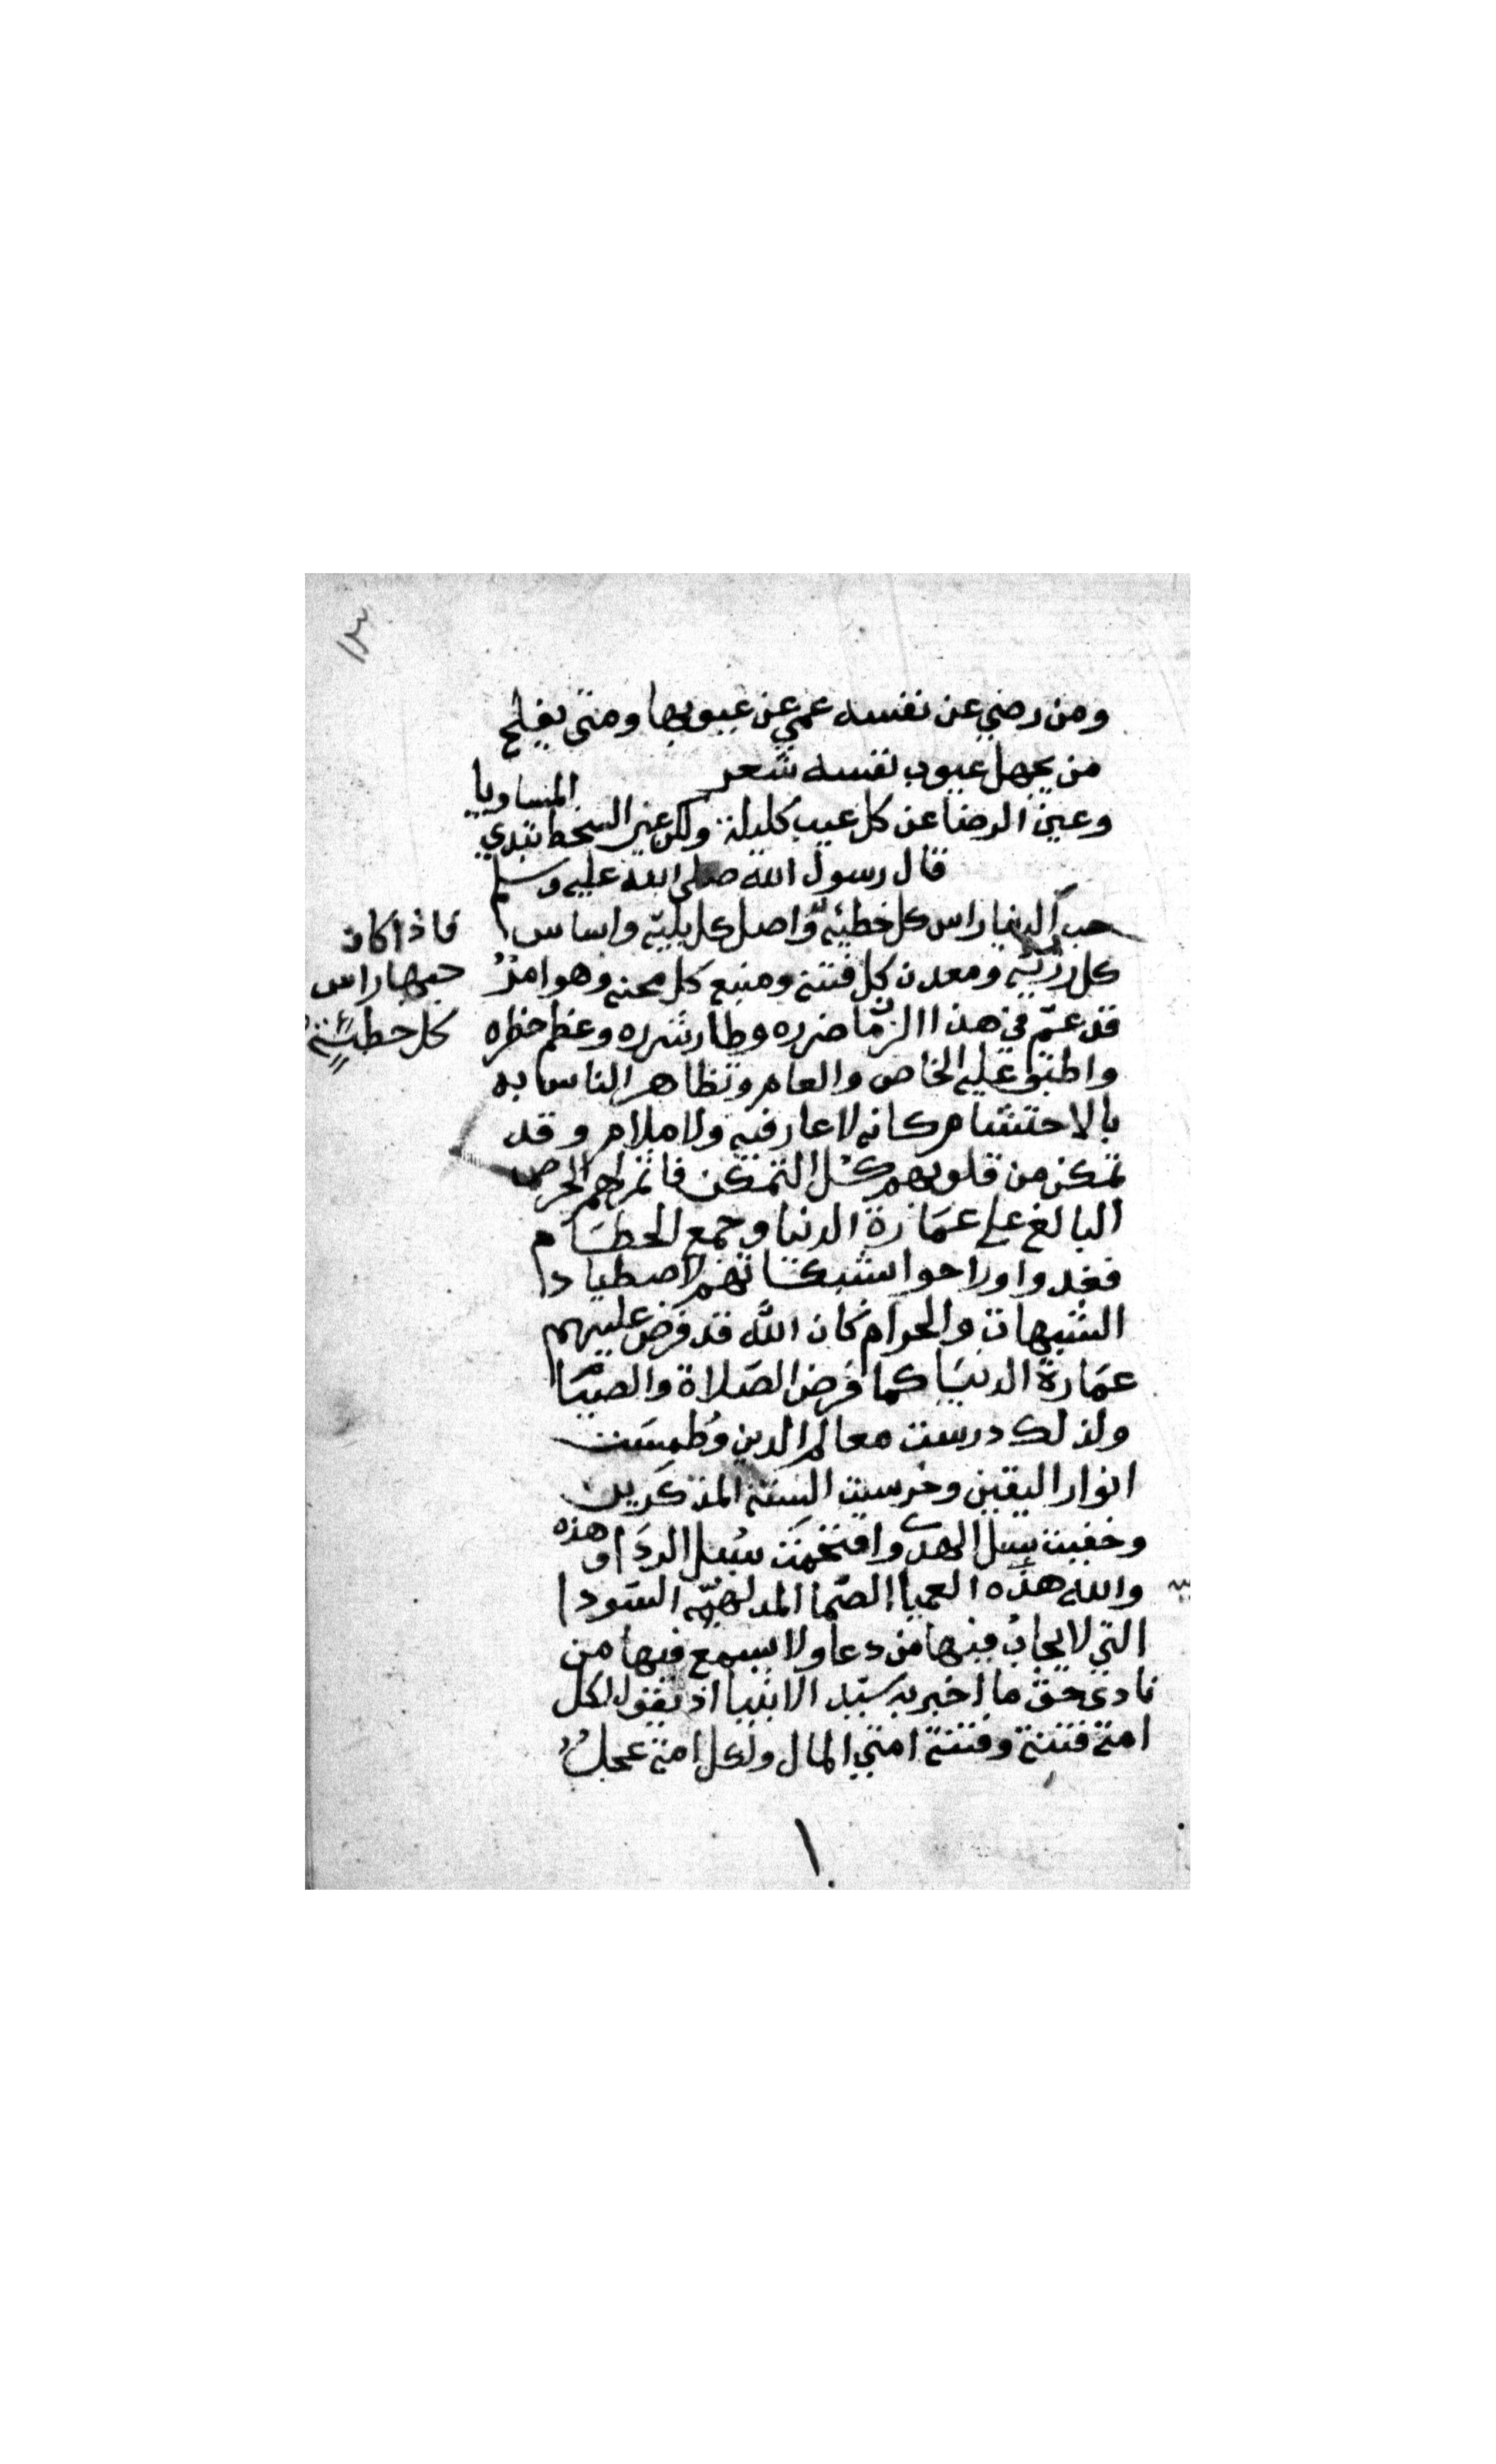 ١٣
ومن رضي عن نفسه عمي عن عيوبها ومتى يفلح
من يجهل عيوب نفسه شعر
وعين الرضا عن كل عيب كليلة ولكن عين السخط تبدي المساويا
قال رسول الله صلى الله عليه وسلم
حب الدنيا راس كل خطيئه واصل كل بليه واساس
كل رزيه ومعدن كل فتنه ومنبع كل محنه وهو امر
قد عم في هذا الزمان ضرره وطار شرره وعظم خطره
واطبق عليه الخاص والعام وتظاهر الناس به
بالاحتشام كانه لا عار فيه ولا ملام وقد
تمكن من قلوبهم كل التمكن فاثمر لهم الحرص
البالغ على عمارة الدنيا وجمع الحطام
فغدوا وراحوا بشبكاتهم لاصطياد
الشبهات والحرام كان الله قد فرض عليهم
عمارة الدنيا كما فرض الصلاة والصيام
ولذلك درست معالم الدين وطمست
انوار اليقين وخرست السنة المذكرين
وخفيت سبل الهدى واقتحمت سبل الردا وهذه
والله هذه العميا الصما المدلهمه السودا
التي لا يجاب فيها من دعا ولا يسمع فيها من
نادى حق ما اخبر به سيد الانبيا اذ يقول لكل
امة فتنة وفتنة امتي المال ولكل امة عجل
فاذا كان
حبها راس
كل خطيئة